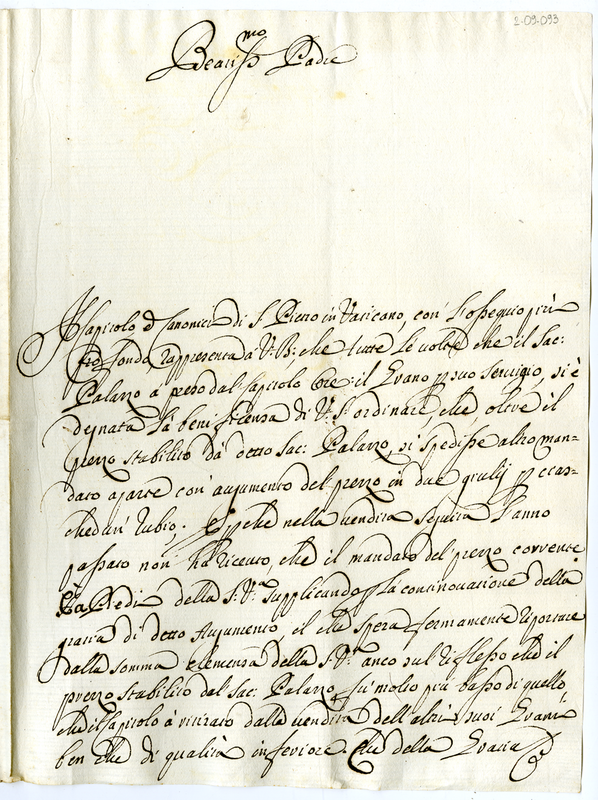 2-09-093
Beatiss.mo Padre
Il Capitolo e Canonici di S. Pietro in Vaticano, con l'ossequio più
profondo rappresenta à V. B., che tutte le volte che il Sac:
Palazzo a preso dal Capitolo il Grano p suo servigio, si è
degnata la beneficenza di V. S. ordinare, che, oltre il
prezzo stabilito dà detto Sac: Palazzo, si spedisse altro man=
dato aparte con' aujumento del prezzo in due giulij p ccias=
chedun' rubio; E p che nella vendita seguita l'anno
passato non hà ricevuto, che il mandato del prezzo corrente
Piedi della S. V.a supplicando la continovazione della
grazia di detto Aujumento, il che spera fermamente riportare
dalla somma clemenza della S. V.a anco sul riflesso che il
prezzo stabilito dal Sac: Palazzo fù molto più basso di quello,
che il Capitolo à ritirato dalla vendita dell'altri suoi Grani
ben che di qualità inferiore. Che della Grazia